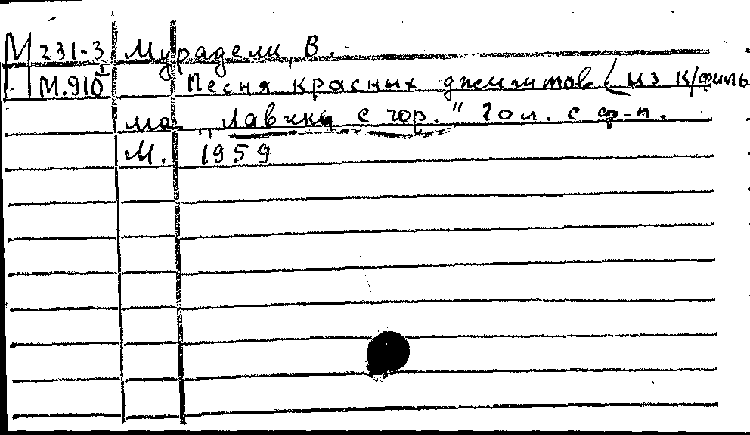 М 231-3 Мурадели, В.
М.910 Песня красных джигитов (из к/филь
ма „Лавина с гор.“ Гол. с ф-п.
М. 1959